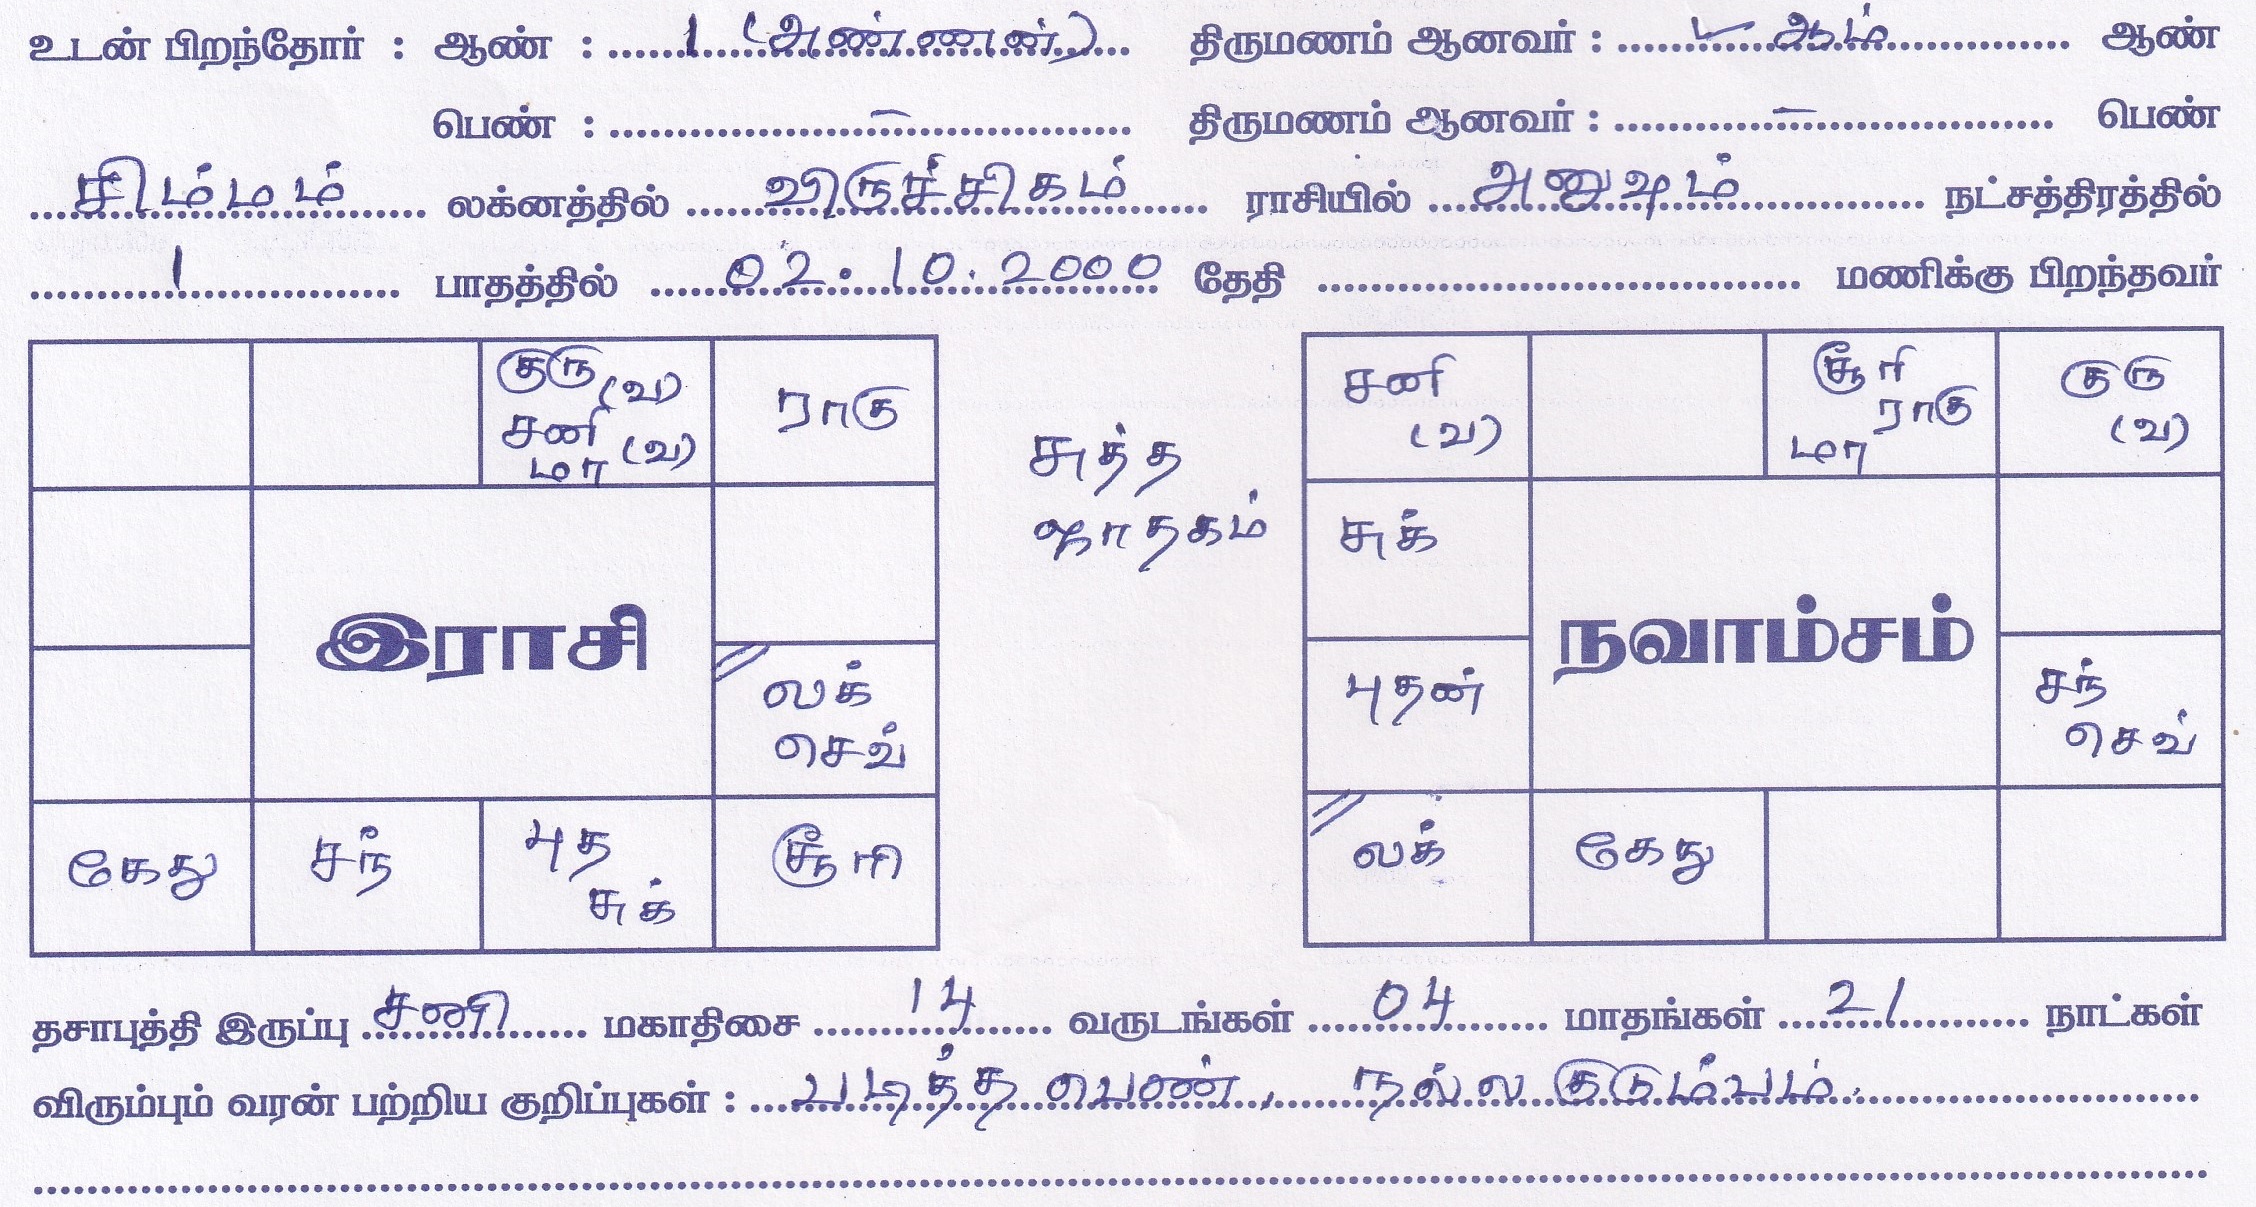 உடன் பிறந்தோர் : ஆண் : 1 (அண்ணன்) திருமணம் ஆனவர் : ஆம் ஆண்
பெண் : – திருமணம் ஆனவர் : – பெண்
சிம்மம் லக்னத்தில் விருச்சிகம் ராசியில் அனுஷம் நட்சத்திரத்தில்
1 பாதத்தில் 02.10.2000 தேதி மணிக்கு பிறந்தவர்
குரு (வ)
சனி (வ)
மா
ராகு
லக்
செவ்
இராசி
கேது
சந்
புத
சுக்
சூரி
சுத்த
ஜாதகம்
சனி
(வ)
சூரி
ராகு
மா
குரு
(வ)
சுக்
நவாம்சம்
புதன்
சந்
செவ்
லக்
கேது
தசாபுத்தி இருப்பு சனி மகாதிசை 14 வருடங்கள் 04 மாதங்கள் 21 நாட்கள்
விரும்பும் வரன் பற்றிய குறிப்புகள் : படித்த பெண், நல்ல குடும்பம்.